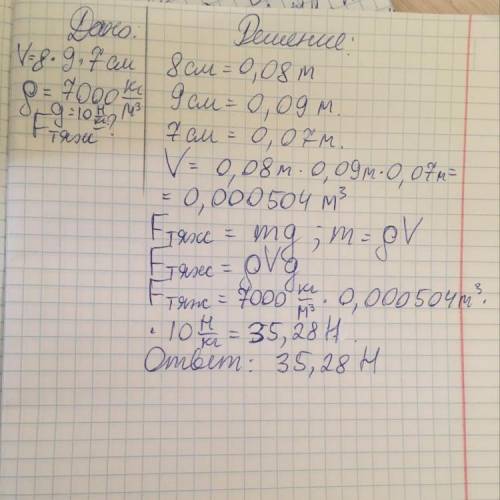 Дано:
V=8·9·7см
ρ=7000 кг/м³
g=10 Н/кг
Fтяж?
Решение:
8см=0,08м
9см=0,09м.
7см=0,07м.
V= 0,08м·0,09м·0,07м=
=0,000504 м³
Fтяж = mg ; m=ρV
Fтяж=ρVg
Fтяж=7000 кг/м³ · 0,000504м³·
·10 Н/кг = 35,28 Н.
Ответ: 35,28 Н